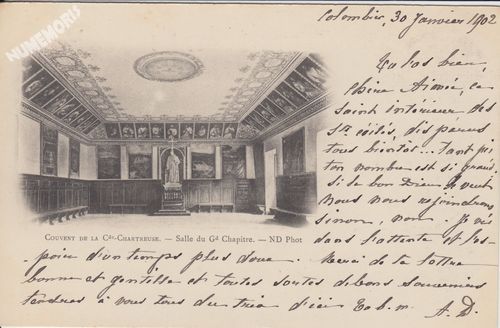 NUMEMORIS
Colombier, 30 Janvier 1902
Tu las bien,
chère Aimée, ce
saint intérieur des
Sts exilés, dispersés
tous bientôt... tant pis
ton nombre est si grand,
si le bon Dieu le veut
nous nous rejoindrons
sinon, non. Je vis
dans l'attente et l'es-
COUVENT DE LA Gde-CHARTREUSE. — Salle du Gd Chapitre. — ND Phot
poir d'un temps plus doux. Merci de ta lettre
bonne et gentille et toutes sortes de bons souvenirs
tendres à vous tous du trio d'ici A. D.